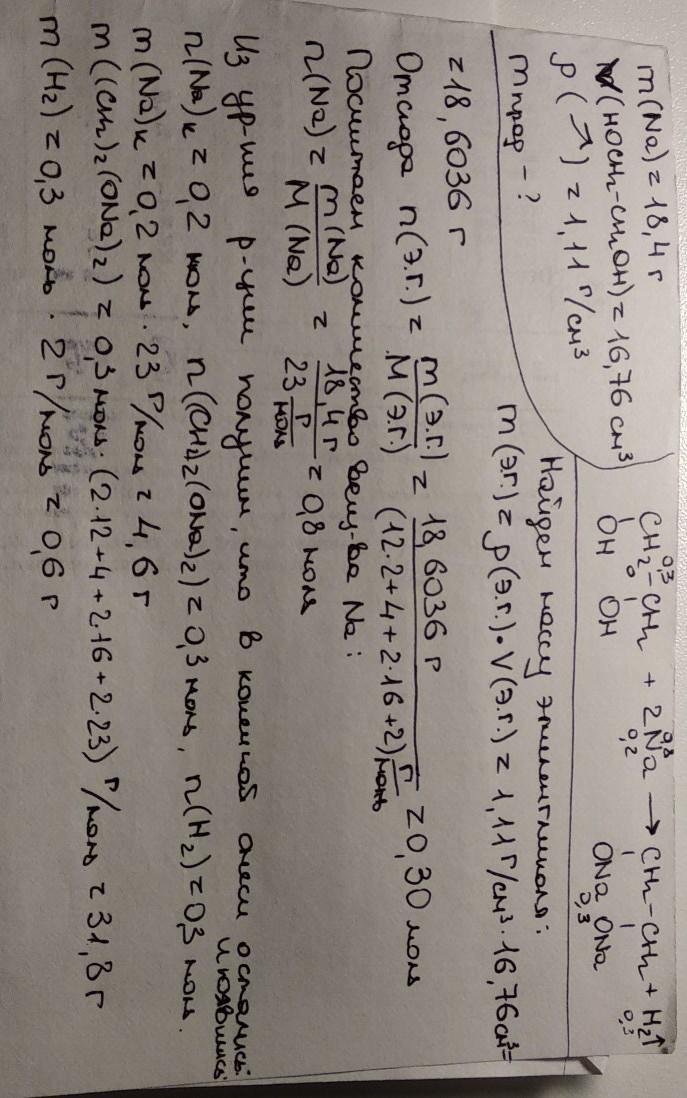 m(Na) = 18,4 г
V(HOCH₂-CH₂OH) = 16,76 см³
ρ( ↗ ) = 1,11 г/см³
m прод - ?
0,3 0,8
CH₂-CH₂ + 2Na → CH₂-CH₂ + H₂↑
0 0,2 0,3
OH OH ONa ONa
0,3
Найдем массу этиленгликоля:
m(э.г.) = ρ(э.г.)·V(э.г.) = 1,11 г/см³ · 16,76 см³ =
= 18,6036 г
Отсюда n(э.г.) = m(э.г.)/M(э.г.) = 18,6036 г/(12·2+4+2·16+2) г/моль = 0,30 моль
Посчитаем количество вещ-ва Na:
n(Na) = m(Na)/M(Na) = 18,4 г/23 г/моль = 0,8 моля
Из ур-ния р-ции получим, что в конечной смеси остались
и появились:
n(Na)к = 0,2 моль, n((CH)₂(ONa)₂) = 0,3 моль, n(H₂) = 0,3 моль.
m(Na)к = 0,2 моль · 23 г/моль = 4,6 г
m((CH₂)₂(ONa)₂) = 0,3 моль · (2·12+4+2·16+2·23) г/моль = 31,8 г
m(H₂) = 0,3 моль · 2 г/моль = 0,6 г